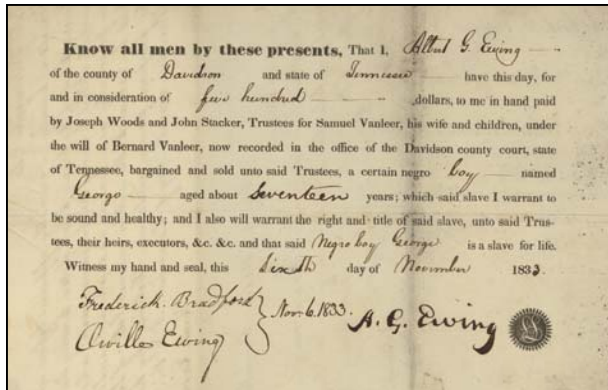 Know all men by these presents, That I, Albert G. Ewing
of the county of Davidson and state of Tennessee have this day, for
and in consideration of five hundred dollars, to me in hand paid
by Joseph Woods and John Stacker, Trustees for Samuel Vanleer, his wife and children, under
the will of Bernard Vanleer, now recorded in the office of the Davidson county court, state
of Tennessee, bargained and sold unto said Trustees, a certain negro boy named
George aged about seventeen years; which said slave I warrant to
be sound and healthy; and I also will warrant the right and title of said slave, unto said Trus-
tees, their heirs, executors, &c. &c. and that said Negro boy George is a slave for life.
Witness my hand and seal, this Sixth day of November 1833.
Frederick Bradford
Orville Ewing
Nov. 6. 1833.
A. G. Ewing